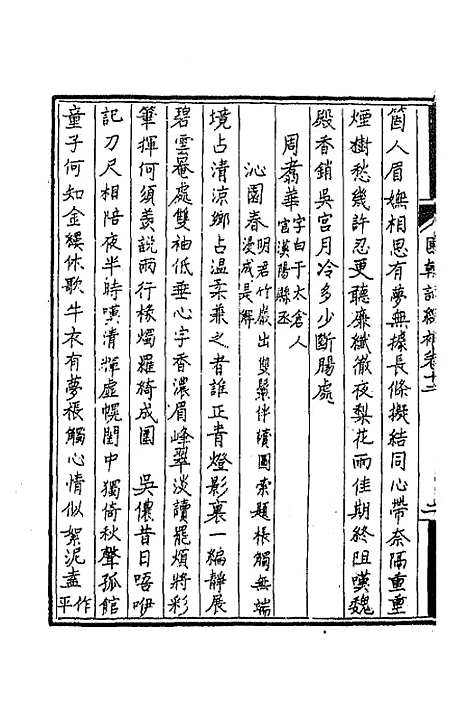 國朝詞綜補卷十二
二
箇人眉嫵相思有夢無據長條擬結同心帶奈隔重重
煙樹愁幾許忍更聽廉纖徹夜梨花雨佳期終阻嘆魏
殿香銷吳宮月冷多少斷腸處
周翥華字白于太倉人官漢陽縣丞
沁園春明君竹嚴出雙鬟伴讀圖索題棖觸無端漫成長解
境占清涼鄉占溫柔兼之者誰正青燈影裏一編靜展
碧雲菴處雙袖低垂心字香濃眉峰翠淡讀罷煩將彩
筆揮何須羨說兩行椽燭羅綺成圍 吳儂昔日唔咿
記刀尺相陪夜半時嘆清輝虛幌閨中獨倚秋聲孤館
童子何知金縷休歌牛衣有夢棖觸心情似絮泥盡作平